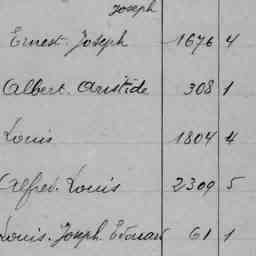 Joseph
Ernest. Joseph 1676 4
Albert. Aristide 308 1
Louis 1804 4
Alfred. Louis 2309 5
Louis. Joseph. Edouard 61 1